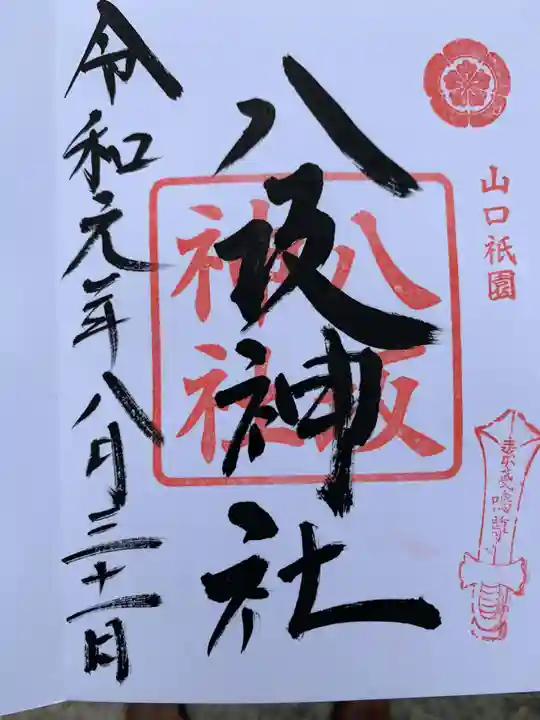 山口祇園
素戔嗚尊
八坂神社
八坂神社
令和元年八月三十一日